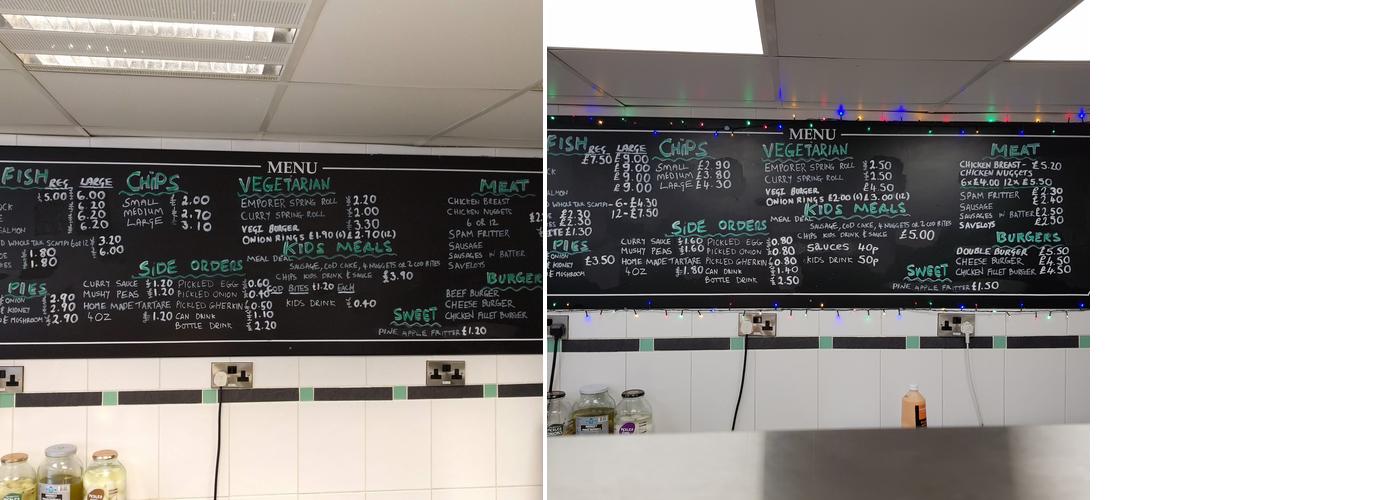 MENU
FISH REG LARGE
5.00 6.00
6.20
6.20
6.20
3.20
6.00
1.80
1.80
PIES
ONION 2.90
KIDNEY 2.90
MUSHROOM 2.90
CHIPS
SMALL £2.00
MEDIUM £2.70
LARGE £3.10
SIDE ORDERS
CURRY SAUCE £1.20 PICKLED EGG £0.60
MUSHY PEAS £1.20 PICKLED ONION £0.40
HOME MADE TARTARE PICKLED GHERKIN £0.50
4OZ £1.20 CAN DRINK £1.10
BOTTLE DRINK £2.20
VEGETARIAN
EMPORER SPRING ROLL £2.20
CURRY SPRING ROLL £2.00
VEGI BURGER £3.30
ONION RINGS £1.90 (6) £2.70 (12)
KIDS MEALS
MEAL DEAL
SAUSAGE, COD CAKE, 4 NUGGETS OR 2 COD BITES
CHIPS KIDS DRINK & SAUCE £3.90
COD BITES £1.20 EACH
KIDS DRINK £0.40
SWEET
PINE APPLE FRITTER £1.20
MEAT
CHICKEN BREAST
CHICKEN NUGGETS
6 OR 12
SPAM FRITTER
SAUSAGE
SAUSAGES IN BATTER
SAVELOYS
BURGER
BEEF BURGER
CHEESE BURGER
CHICKEN FILLET BURGER
MENU
FISH REG LARGE
£7.50 £9.00
£9.00
£9.00
£9.00
6-£4.30
12-£7.50
£2.30
£2.30
£1.30
PIES
£3.50
KIDNEY
MUSHROOM
CHIPS
SMALL £2.90
MEDIUM £3.80
LARGE £4.30
SIDE ORDERS
CURRY SAUCE £1.60 PICKLED EGG £0.90
MUSHY PEAS £1.60 PICKLED ONION £0.80
HOME MADE TARTARE PICKLED GHERKIN £0.80
4OZ £1.80 CAN DRINK £1.40
BOTTLE DRINK £2.50
VEGETARIAN
EMPORER SPRING ROLL £2.50
CURRY SPRING ROLL £2.50
VEGI BURGER £4.50
ONION RINGS £2.00 (6) £3.00 (12)
KIDS MEALS
MEAL DEAL
SAUSAGE, COD CAKE, 4 NUGGETS OR 2 COD BITES
CHIPS KIDS DRINK & SAUCE £5.00
SAUCES 40p
KIDS DRINK 50p
SWEET
PINE APPLE FRITTER £1.50
MEAT
CHICKEN BREAST- £5.20
CHICKEN NUGGETS
6x£4.00 12x£5.50
SPAM FRITTER £2.30
SAUSAGE £2.40
SAUSAGES IN BATTER £2.50
SAVELOYS £2.50
BURGERS
DOUBLE BURGER £5.50
CHEESE BURGER £4.50
CHICKEN FILLET BURGER £4.50